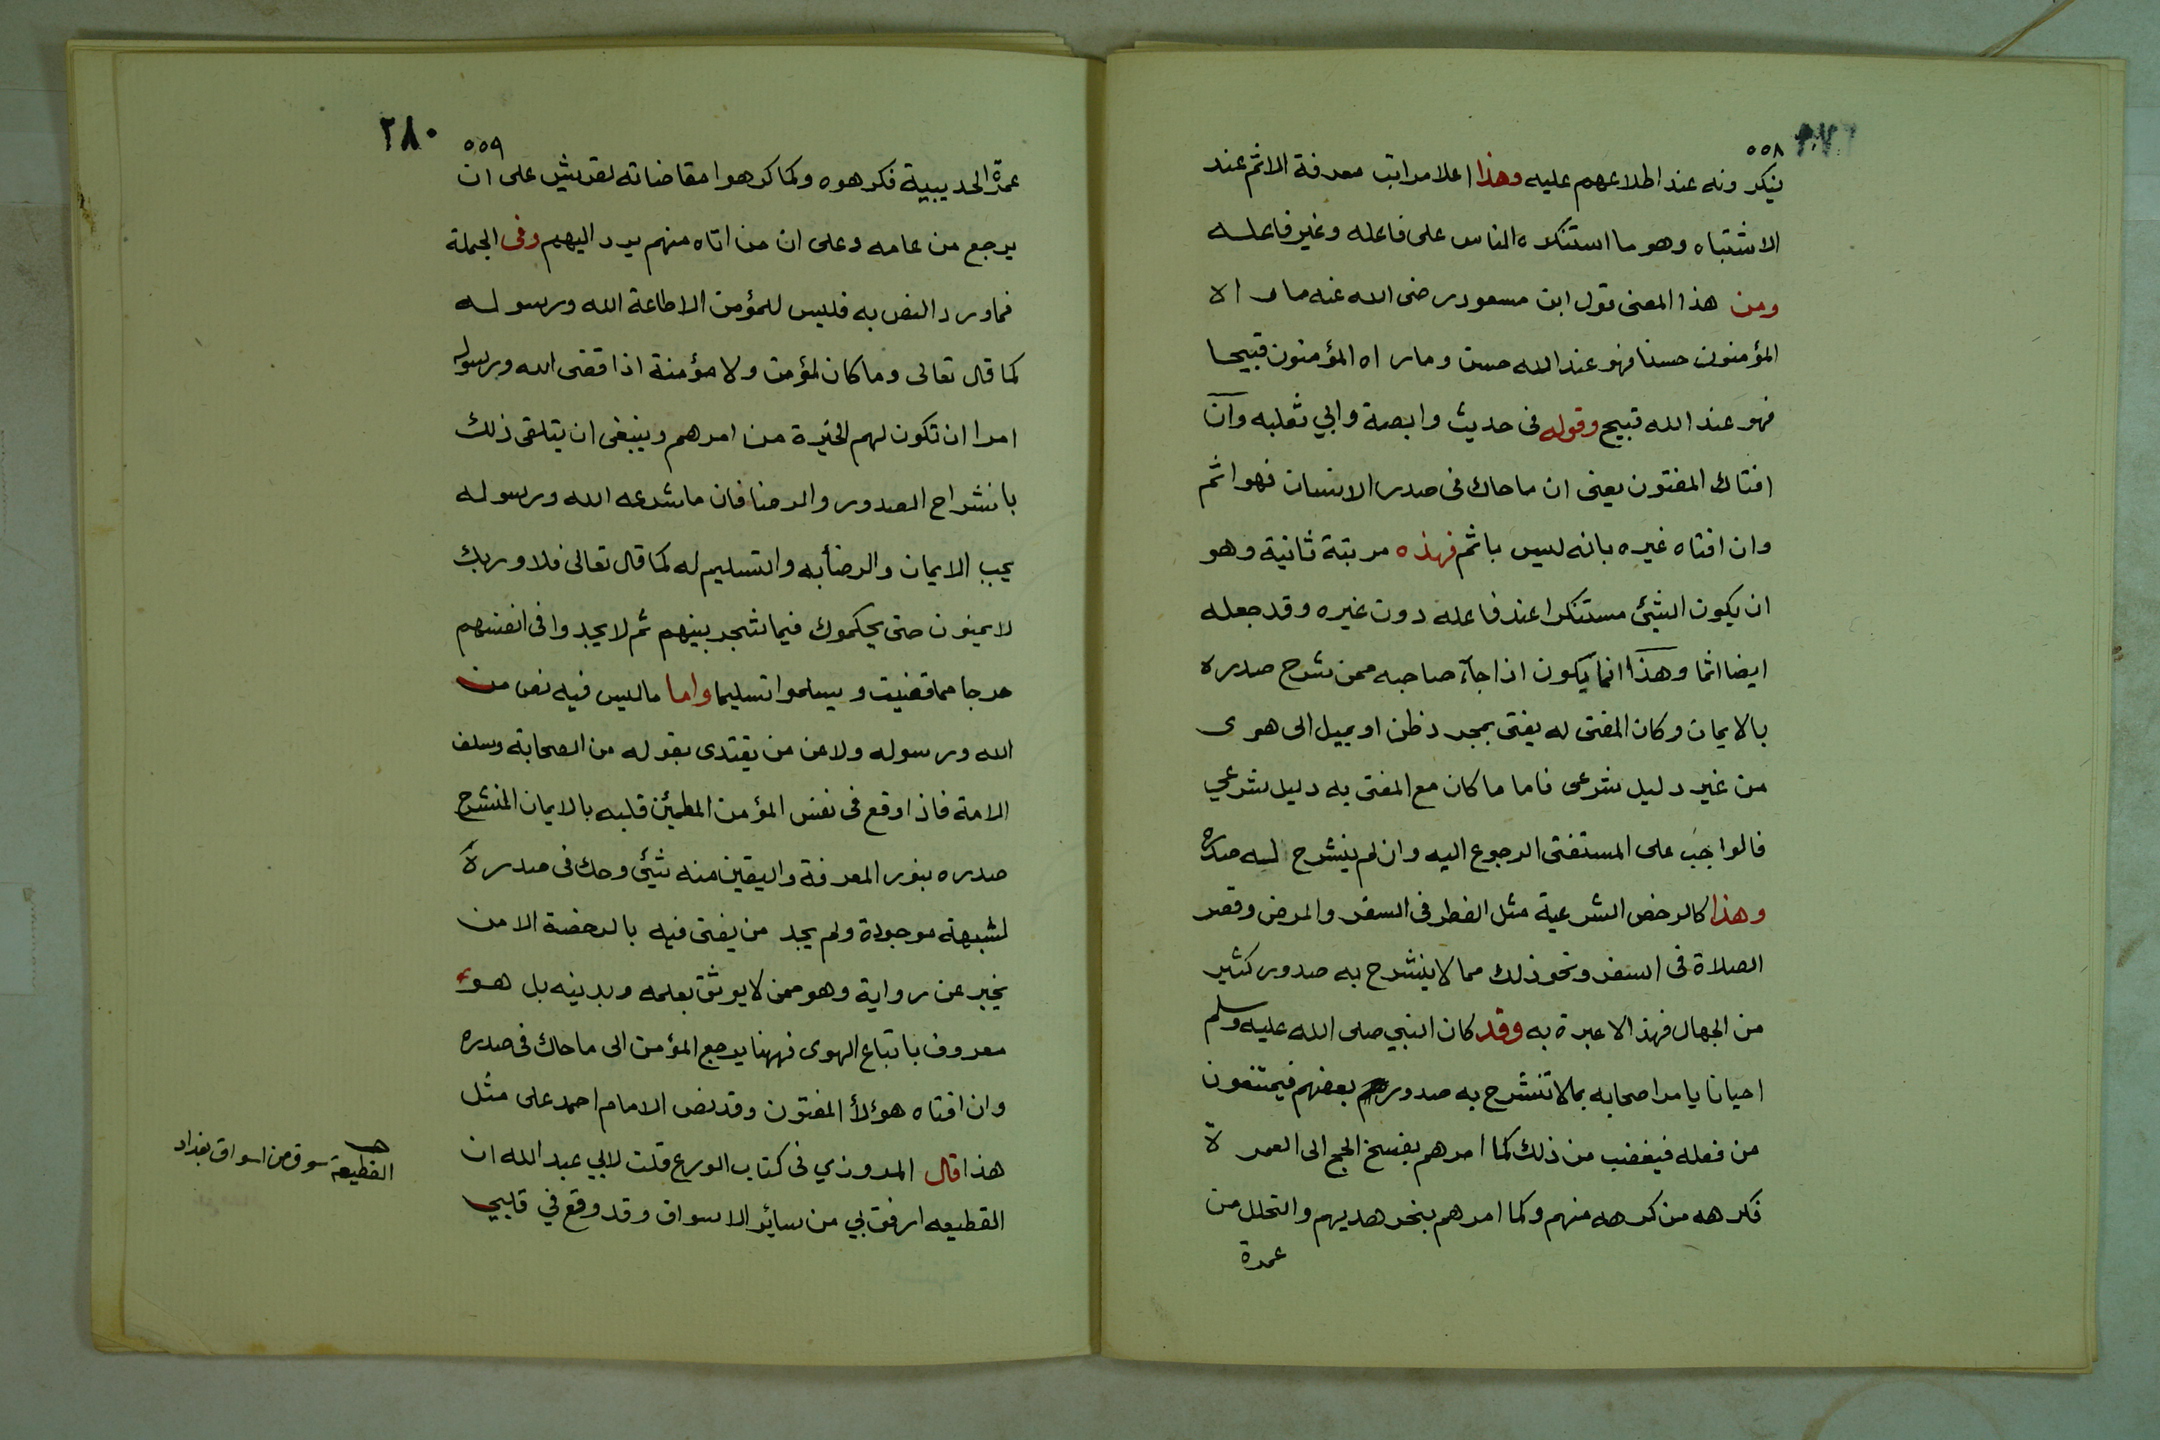 ٥٥٨
ينكرونه عند اطلاعهم عليه وهذا اعلا مراتب معرفة الاثم عند
الاشتباه وهو ما استنكره الناس على فاعله وغير فاعله
ومن هذا المعنى قول ابن مسعود رضى الله عنه ما راه
المؤمنون حسنا فهو عند الله حسن وما راه المؤمنون قبيحا
فهو عند الله قبيح وقوله فى حديث وابصة وابي ثعلبه وان
افتاك المفتون يعنى ان ما حاك فى صدر الانسان فهو اثم
وان افتاه غيره بانه ليس باثم فهذه مرتبة ثانية وهو
ان يكون الشئ مستنكرا عند فاعله دون غيره وقد جعله
ايضا اثما وهذا انما يكون اذا جآء صاحبه ممن شرح صدره
بالايمان وكان المفتى له يفتى بمجرد ظن او يميل الى هوى
من غير دليل شرعى فاما ما كان مع المفتى به دليل شرعي
فالواجب على المستفتى الرجوع اليه وان لم ينشرح له صدره
وهذا كالرخص الشرعية مثل الفطر فى السفر والمرض وقصر
الصلاة فى السفر ونحو ذلك مما لا ينشرح به صدور كثير
من الجهال فهذا لا عبرة به وقد كان النبي صلى الله عليه وسلم
احيانا يامر اصحابه بما لا تنشرح به صدور بعضهم فيمتنعون
من فعله فيغضب من ذلك كما امرهم بفسخ الحج الى العمرة
فكرهه من كرهه منهم وكما امرهم بنحر هديهم والتحلل من
عمرة
٢٨٠
٥٥٩
عمرة الحديبية فكرهوه وكما كرهوا مقاضاته لقريش على ان
يرجع من عامه وعلى ان من اتاه منهم يرد اليهم وفى الجملة
فما ورد النص به فليس للمؤمن الا طاعة الله ورسوله
كما قال تعالى وما كان لمؤمن ولا مؤمنة اذا قضى الله ورسوله
امرا ان تكون لهم الخيرة من امرهم وينبغى ان يتلقى ذلك
بانشراح الصدور والرضا فان ما شرعه الله ورسوله
يجب الايمان والرضأ به والتسليم له كما قال تعالى فلا وربك
لا يمنون حتى يحكموك فيما شجر بينهم ثم لا يجدوا فى انفسهم
حرجا مما قضيت ويسلموا تسليما واما ما ليس فيه نص من
الله ورسوله ولا عن من يقتدى بقوله من الصحابة وسلف
الامة فاذا وقع فى نفس المؤمن المطمئن قلبه بالايمان المنشرح
صدره بنور المعرفة واليقين منه شئ وحك فى صدره
لشبهة موجودة ولم يجد من يفتى فيه بالرخصة الا من
يخبر عن رواية وهو ممن لا يوثق بعلمه وبدينه بل هو
معروف باتباع الهوى فههنا يرجع المؤمن الى ما حاك فى صدره
وان افتاه هؤلأ المفتون وقد نص الامام احمد على مثل
هذا قال المروذي فى كتاب الورع قلت لابي عبد الله ان
القطيعه ارفق بي من سائر الاسواق وقد وقع في قلبي
القطيعة سوق من اسواق بغداد